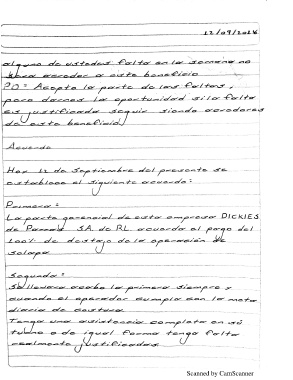 12/09/2018
alguno de ustedes falta en la semana no
hara acredor a este beneficio
PO = Acepto la parte de las faltas,
pero darnos la oportunidad si la falta
es justificada seguir siendo acredores
de este beneficio
Acuerdo
Hoy 12 de Septiembre del presente se
establece el siguiente acuerdo:
Primera:
La parte gerencial de esta empresa DICKIES
de Parras SA de RL acuerda al pago del
100% de destajo de la operación de
solapa
Segunda:
Se llevara acabo la primera siempre y
cuando el operador cumpla con la meta
diaria de costura
Tenga una asistencia completa en su
turno o de igual forma tenga falta
realmente justificadas
Scanned by CamScanner